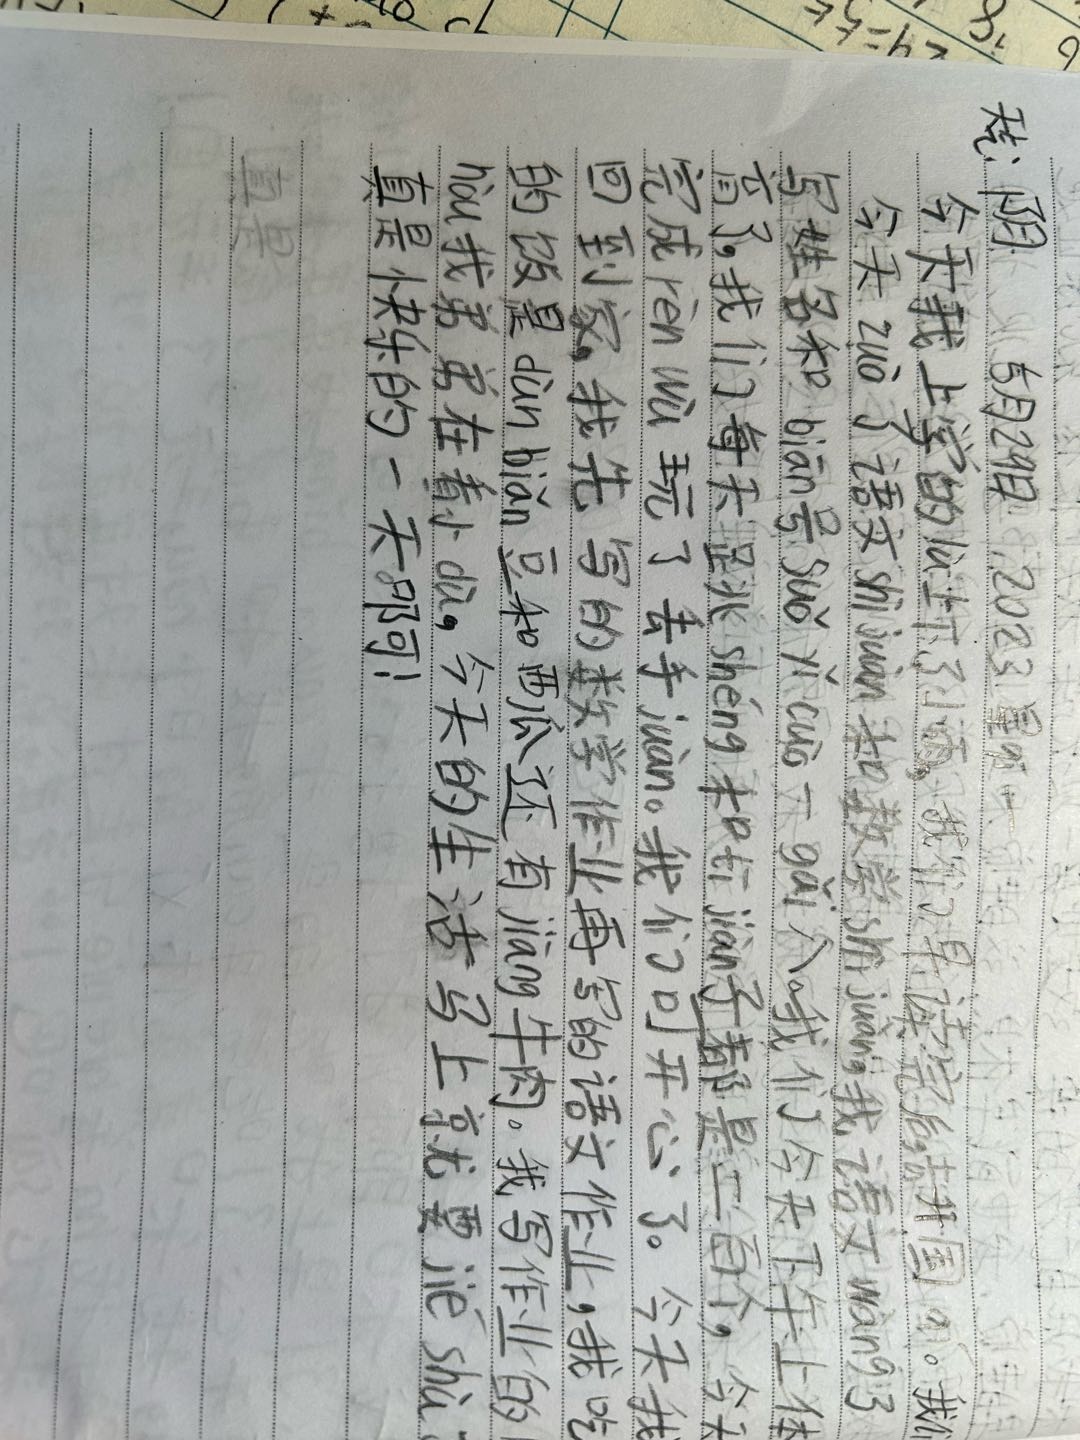 天气:阴 5月29日,2023星期一
今天我上学的lù上下了小雨,我们早读完后去升国
今天zuò了语文shì juàn和数学shì juàn,我语文wàng了
写姓名和biān号suǒ yǐ cuò一gǎi八。我们今天下午上体
育了,我们每天是跳shéng和tī jiàn子都是二百个,今天
完成rèn wù玩了去手juàn。我们可开心了。今天我
回到家,我先写的数学作业再写的语文作业,我吃
的饭是dùn biǎn豆和西瓜还有jiàng牛肉。我写作业的
hòu我弟弟在看小dū,今天的生活马上就要jié shù
真是快乐的一天啊!
真是